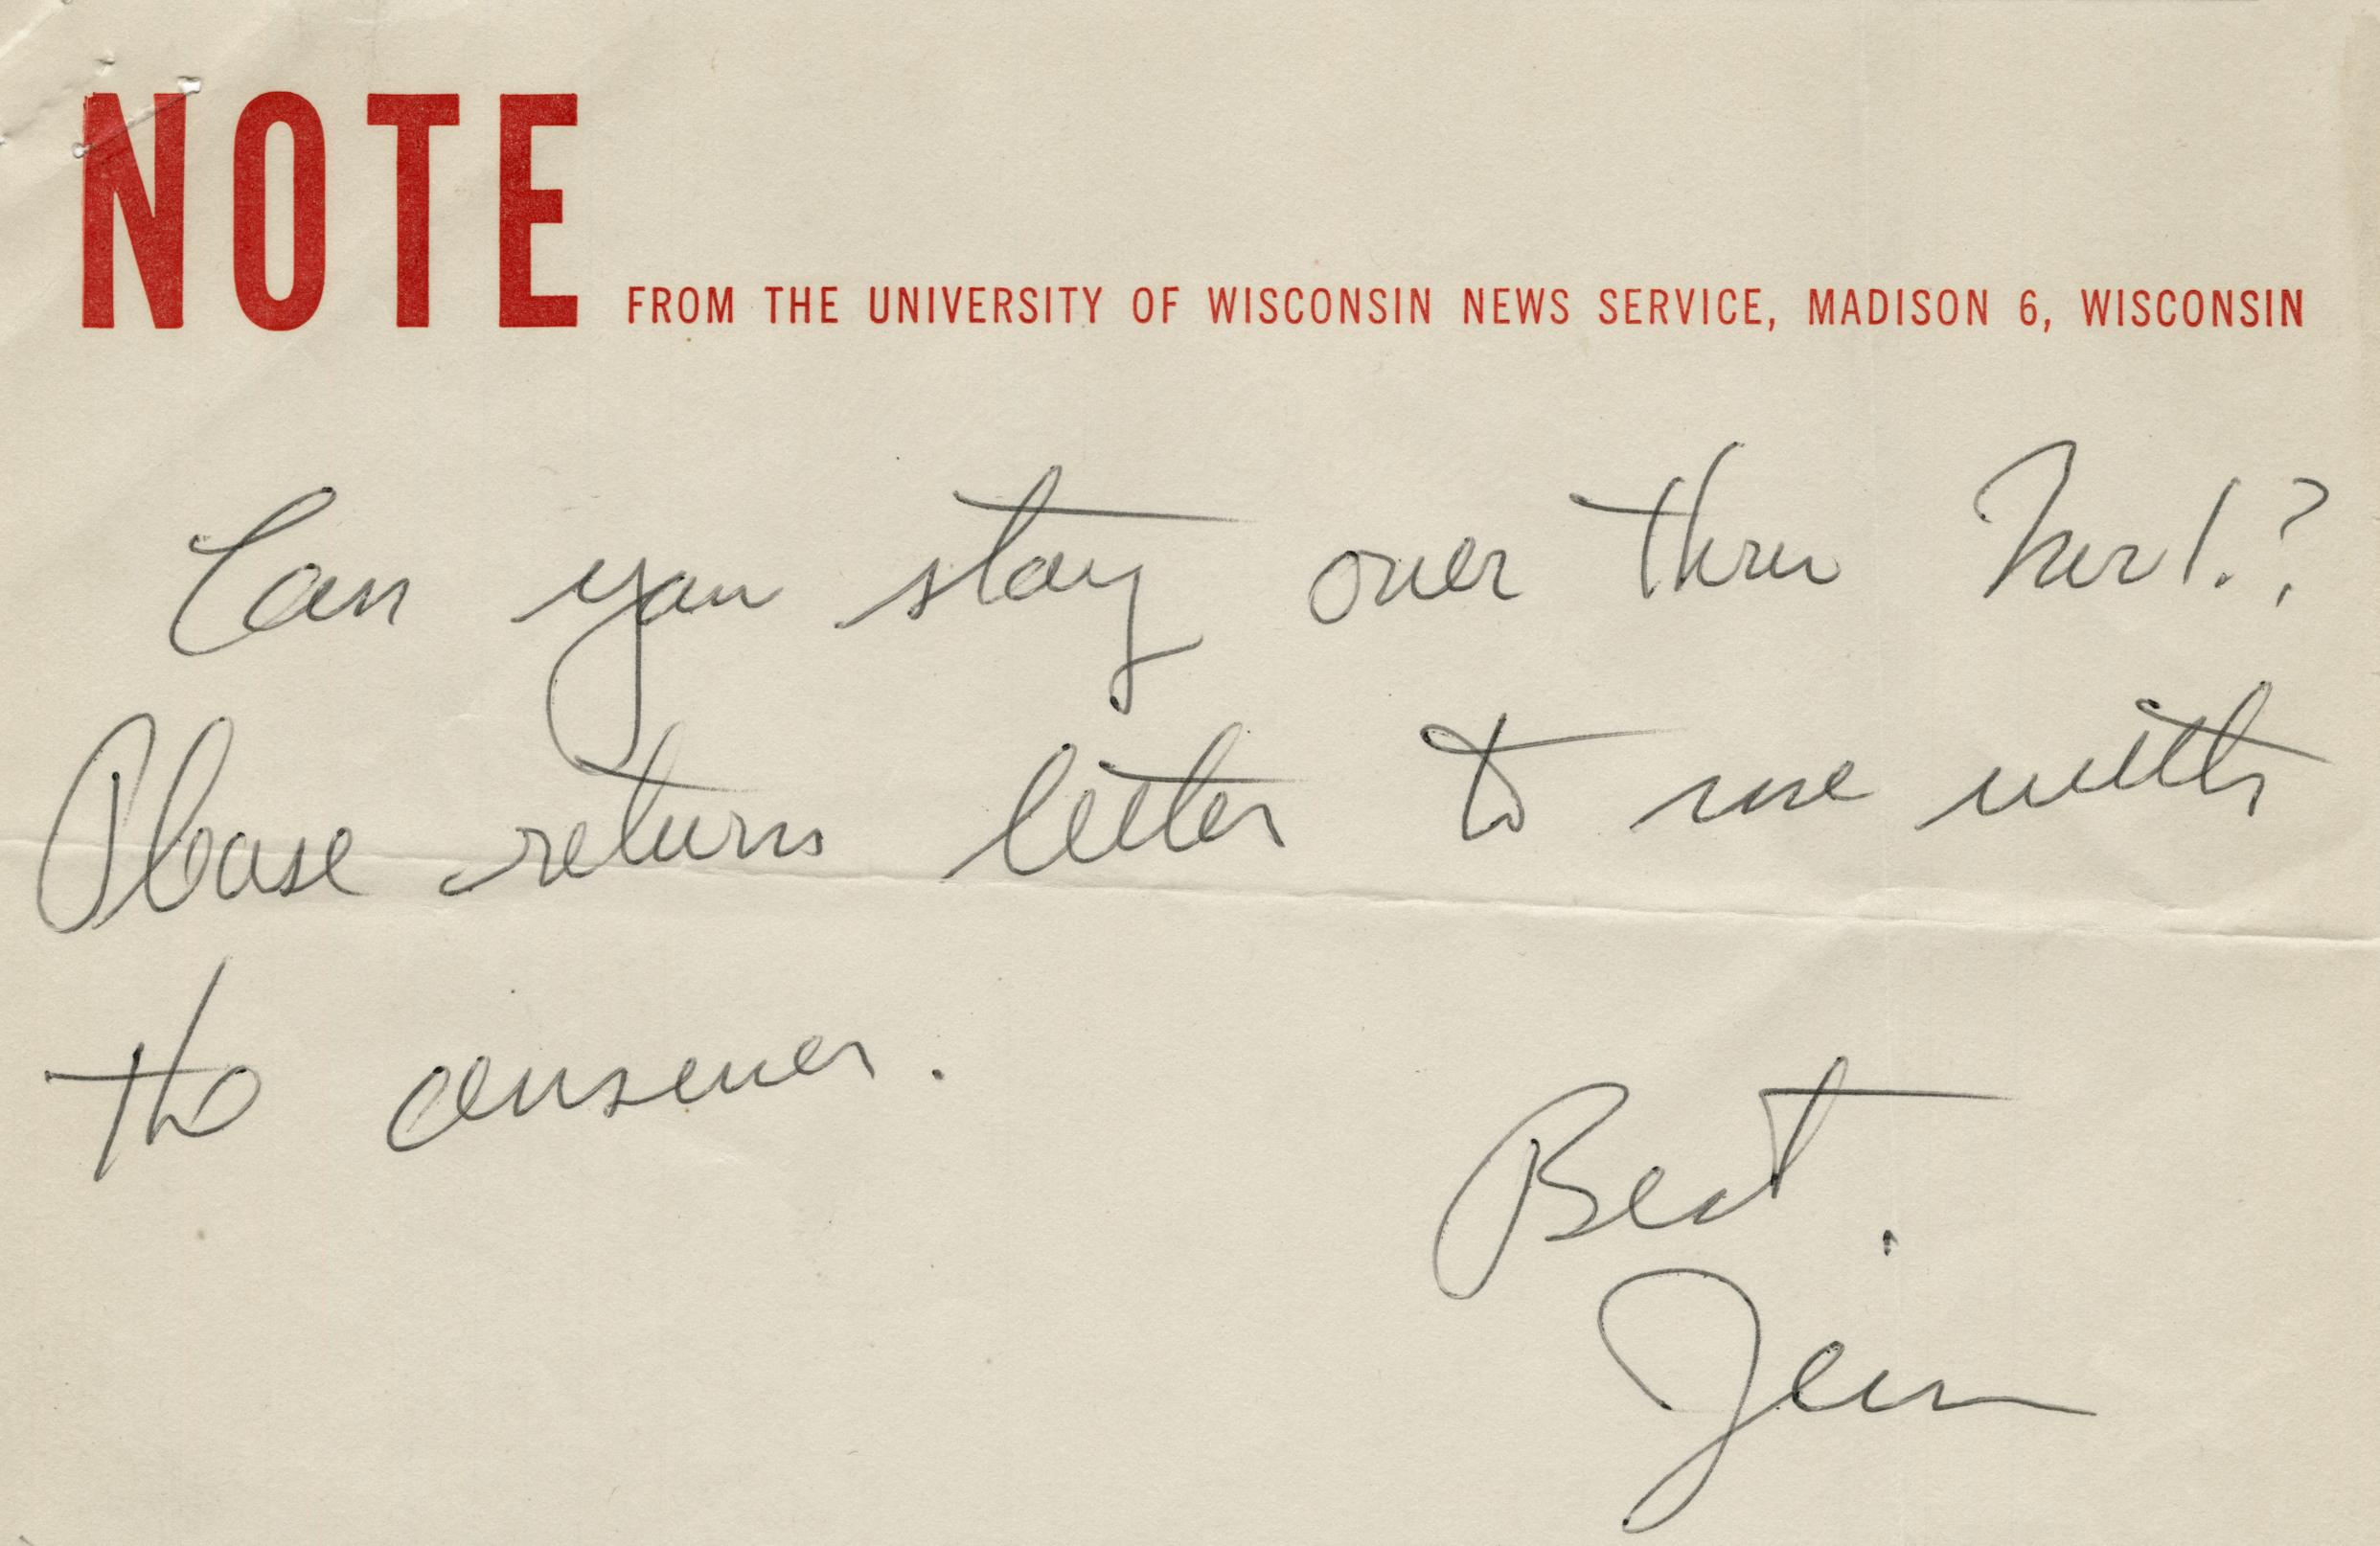 NOTE FROM THE UNIVERSITY OF WISCONSIN NEWS SERVICE, MADISON 6, WISCONSIN
Can you stay over thru
Please return letter to me with
the answer.
Best.
Jim